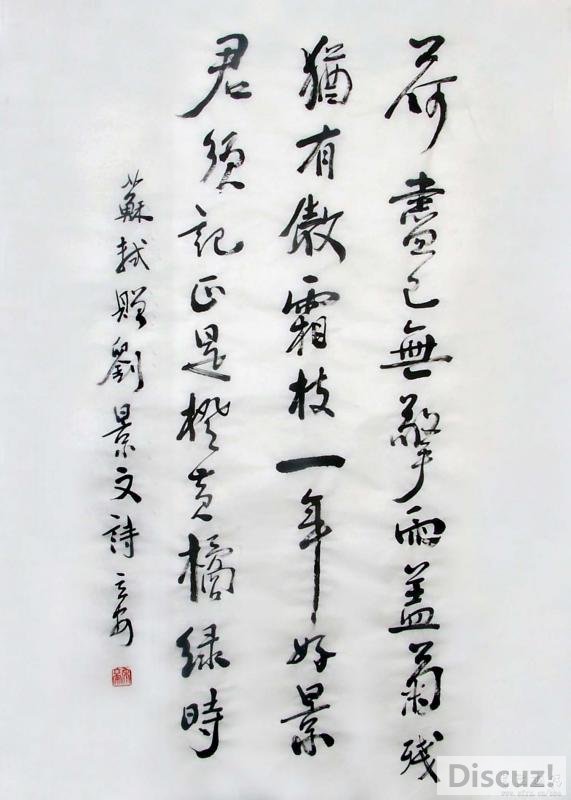 荷盡已無擎雨盖菊残
猶有傲霜枝一年好景
君須記正是橙黄橘緑時
蘇軾贈劉景文詩
Discuz!